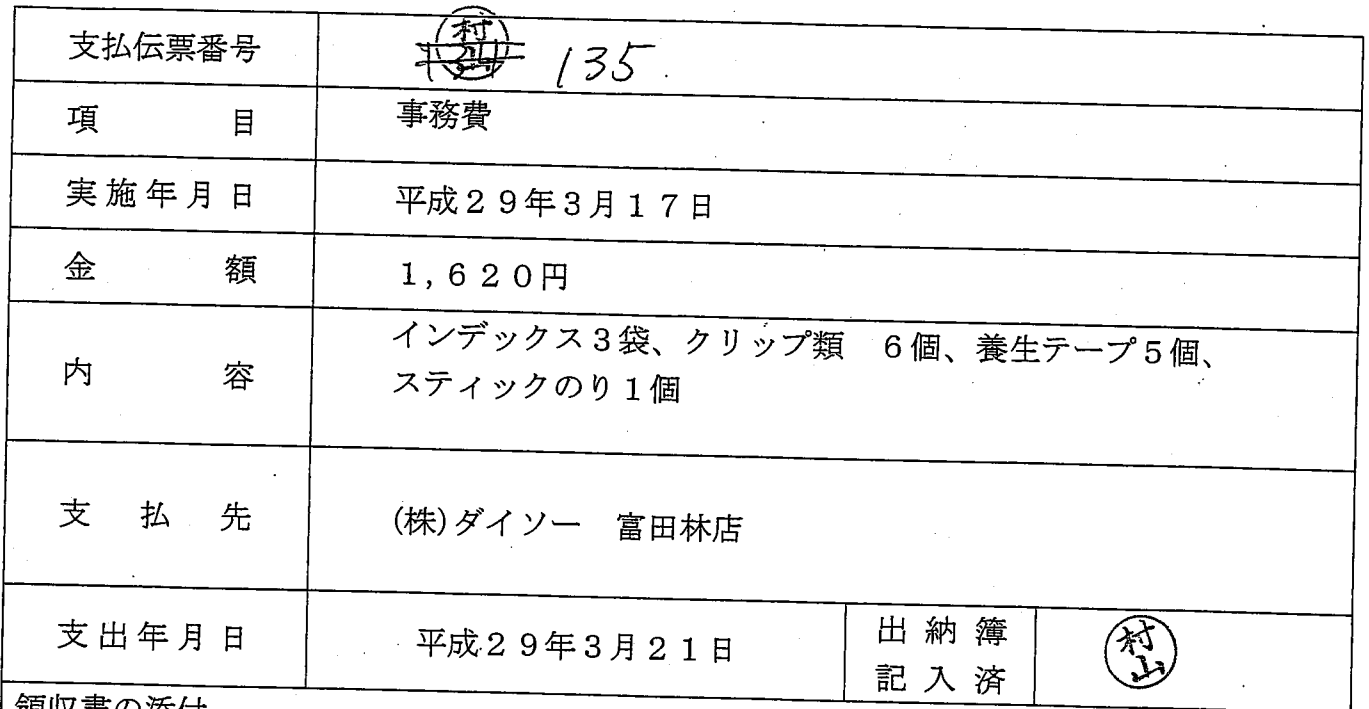 支払伝票番号 村 135
項目 事務費
実施年月日 平成29年3月17日
金額 1,620円
内容 インデックス3袋、クリップ類 6個、養生テープ5個、
スティックのり1個
支払先 (株)ダイソー 富田林店
支出年月日 平成29年3月21日 出納簿
記入済 村山
領収書の添付